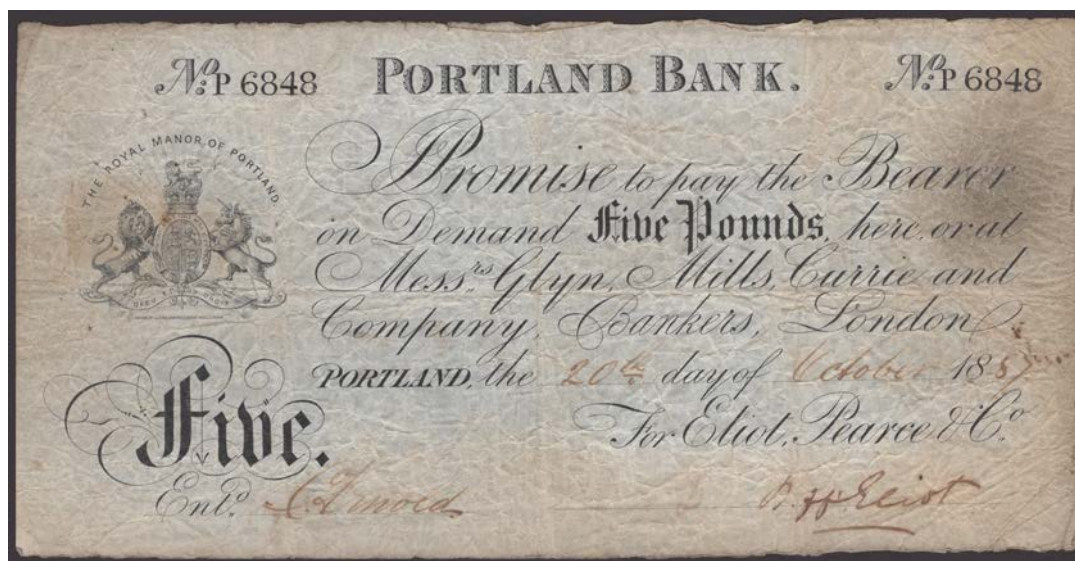 No. P 6848 PORTLAND BANK. No. P 6848
THE ROYAL MANOR OF PORTLAND
I Promise to pay the Bearer
on Demand Five Pounds, here, or at
Messrs. Glyn, Mills, Currie and
Company, Bankers, London.
PORTLAND, the 20th day of October 1887
For Eliot, Pearce & Co.
Five.
Entd.
Eliot